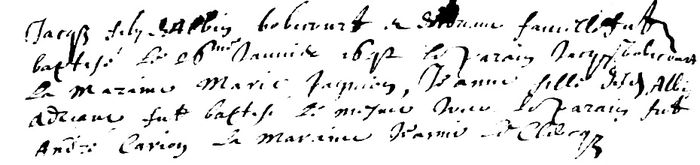 Jacq fils d'Albin bobicourt & adrienne famille fut
baptisé Le 26me Janvier 1692 le parain Jacq bobicourt
La maraine Marie Jaspuon, Jeanne fille du d Albin
Adriane fut baptise le mesme Jour le parain fut
André Carion la maraine Jeanne Le Clercq